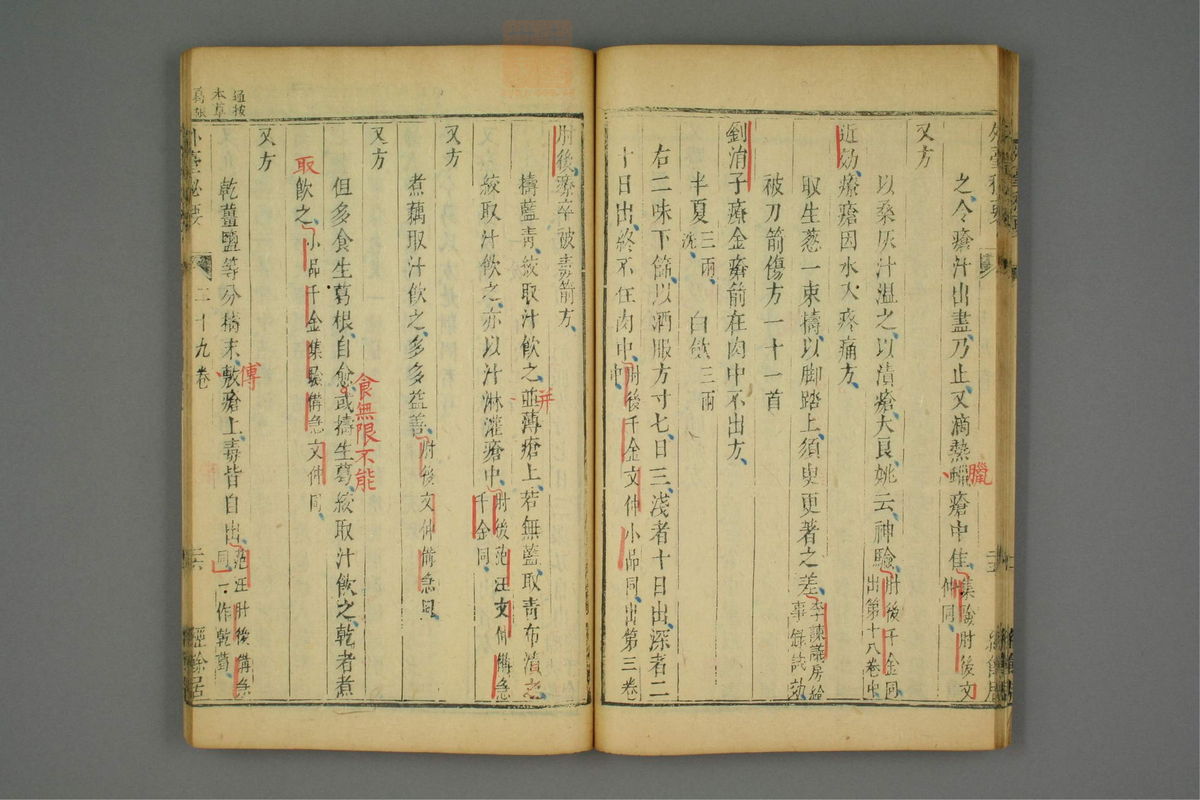 之令瘡汁出盡乃止又滴熱蠟瘡中佳集驗肘後文仲同
臘
又方
以桑灰汁溫之以漬瘡大良姚云神驗肘後千金同出第十八卷中
近効療瘡因水入疼痛方
取生葱一束擣以脚踏上須臾更著之差李諫議房給事錄試効
被刀箭傷方一十一首
劉涓子療金瘡箭在肉中不出方
半夏三兩洗 白斂三兩
右二味下篩以酒服方寸七日三淺者十日出深者二
十日出終不在肉中肘後千金文仲小品同出第三卷中
肘後療卒被毒箭方
擣藍青絞取汁飲之並薄瘡上若無藍取青布漬之
并
絞取汁飲之亦以汁淋灌瘡中肘後范汪文仲備急千金同
又方
煮藕取汁飲之多多益善肘後文仲備急同
又方
但多食生葛根自愈或擣生葛絞取汁飲之乾者煮
食無限不能
取
飲之小品千金集驗備急文仲同
又方
乾薑鹽等分擣末敷瘡上毒皆自出范汪肘後備急同一作乾葛
傅
外臺秘要 二十九卷 二六 經餘居
通按
本草